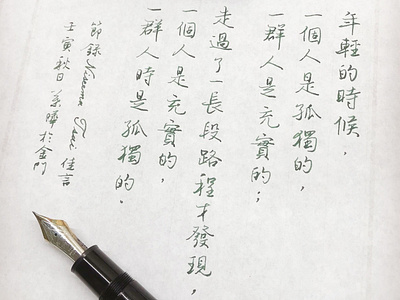 年輕的時候，
一個人是孤獨的，
一群人是充實的；
走過了一長段路程才發現，
一個人是充實的，
一群人時是孤獨的．
節錄 佳言
壬寅秋日 於金門